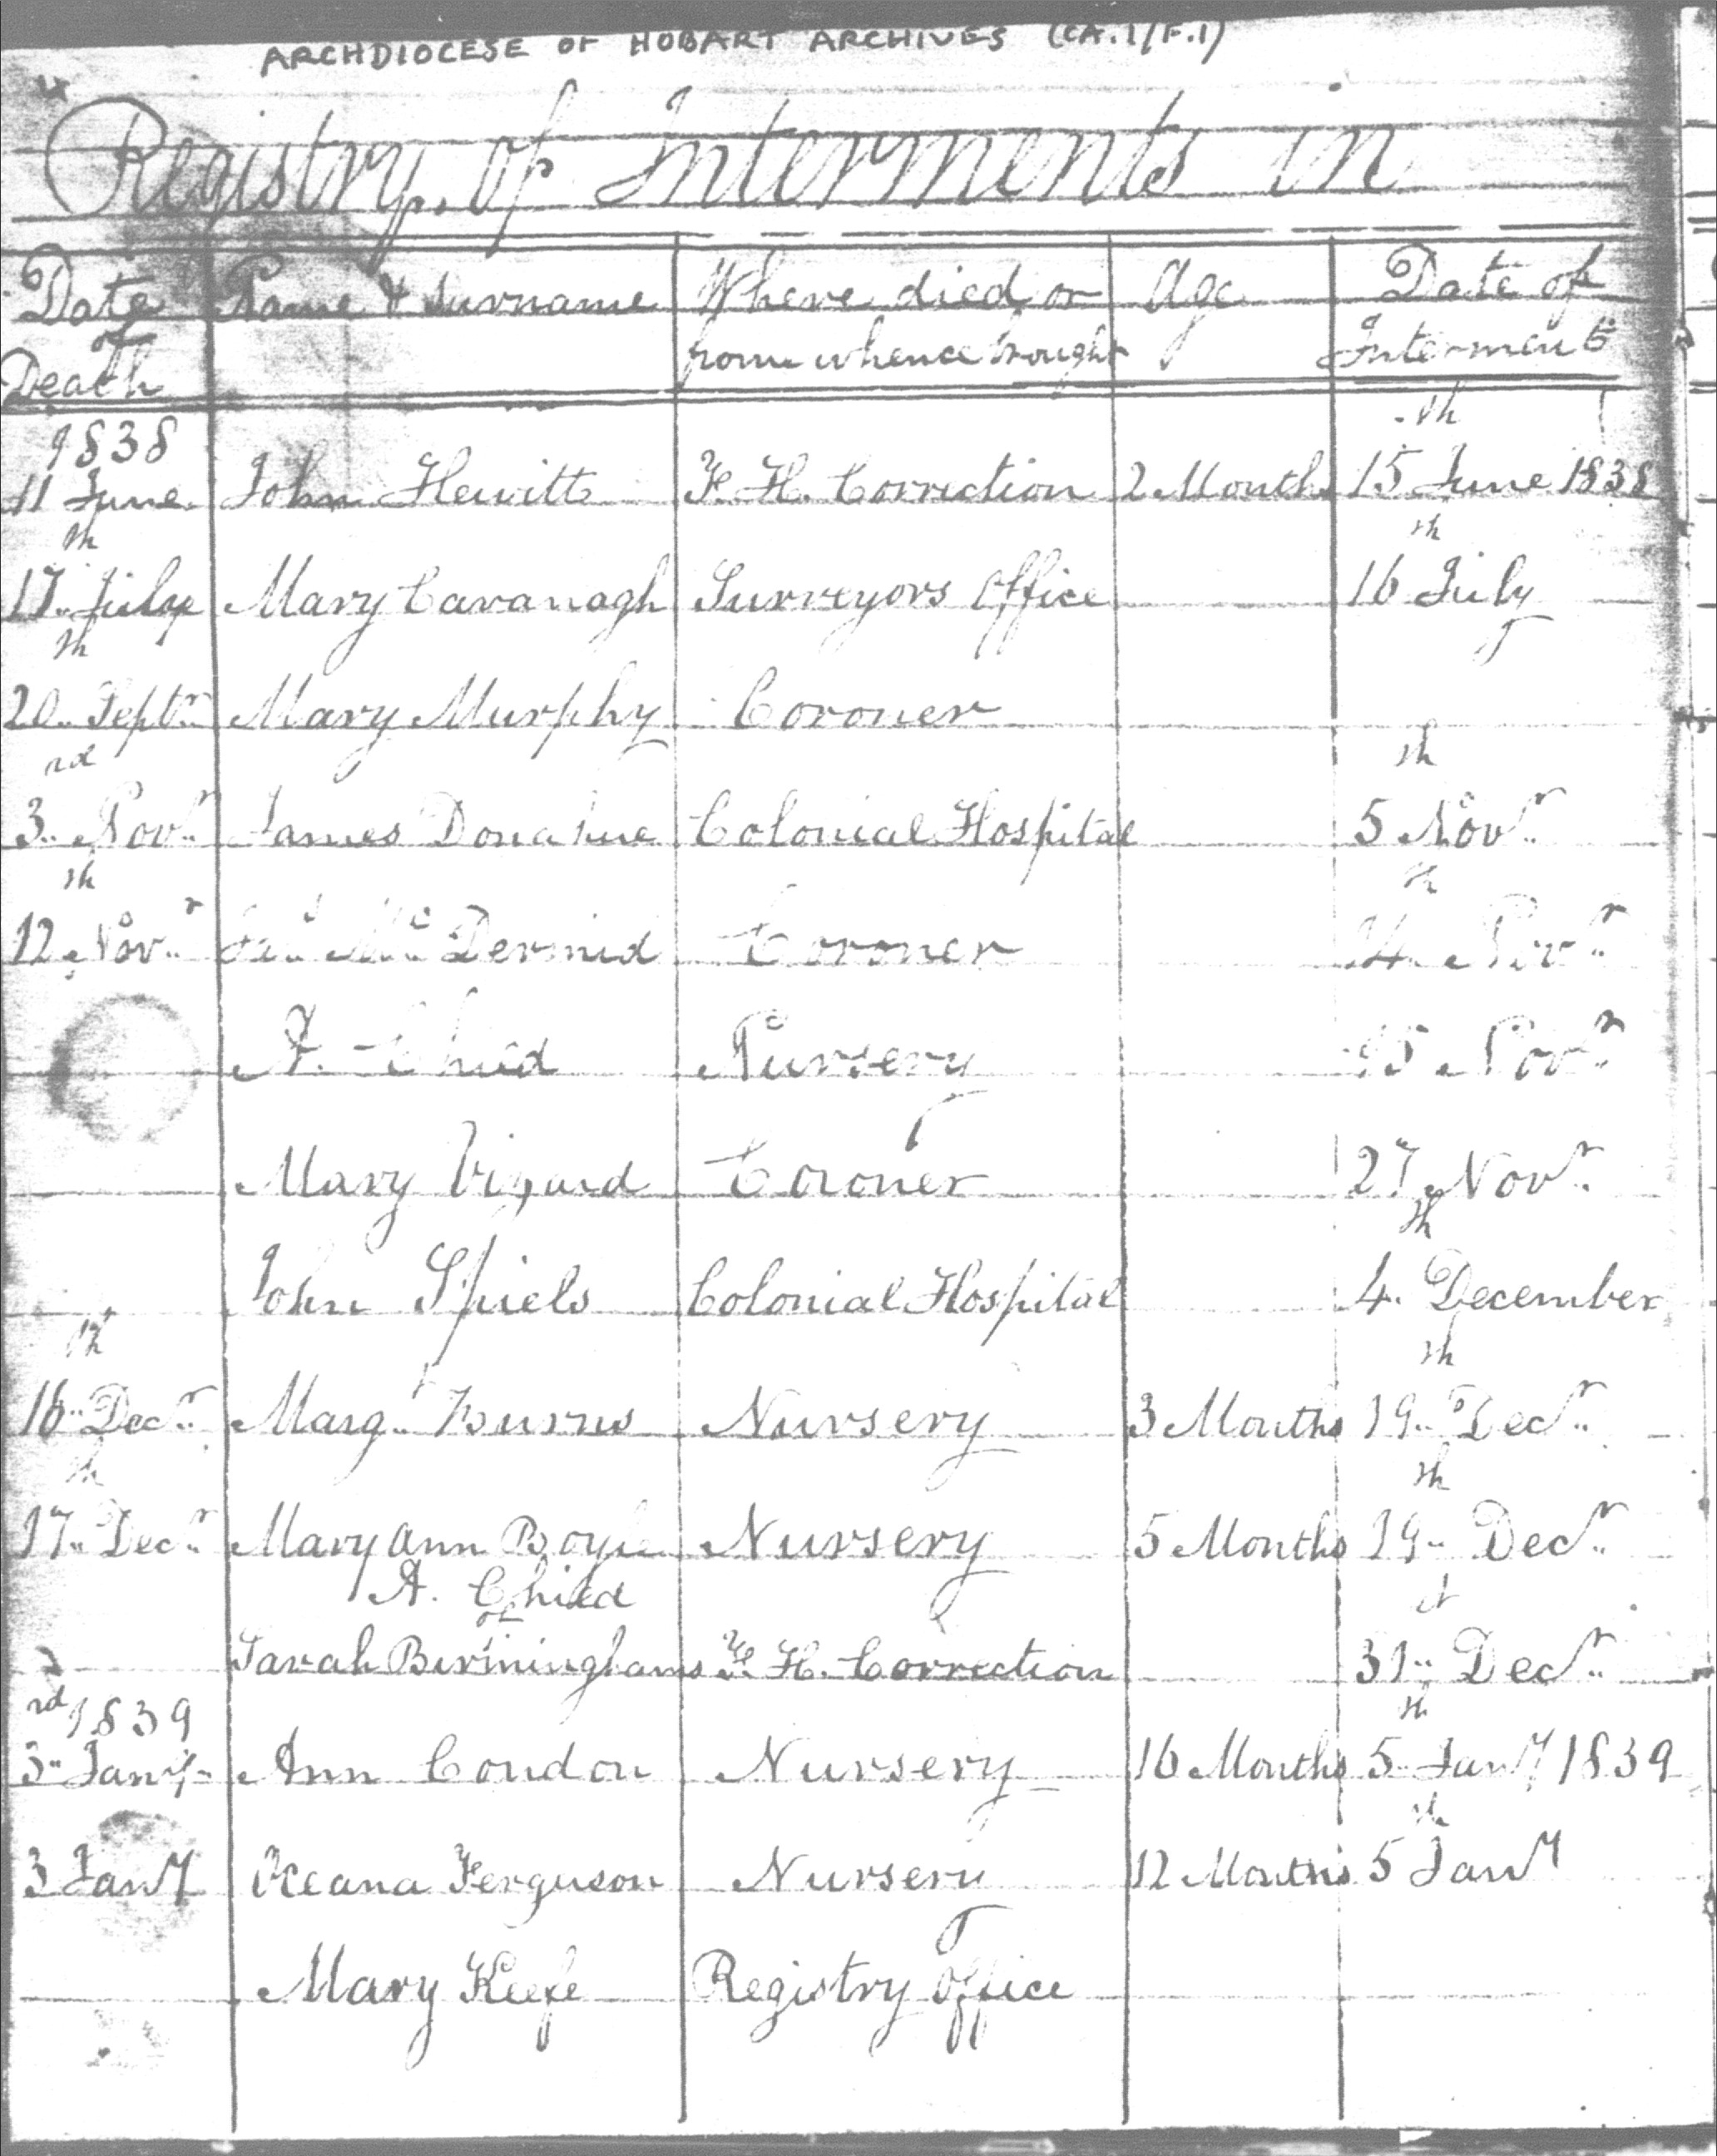 ARCHDIOCESE OF HOBART ARCHIVES (CA.1/F.1)
Registry of Interments in
Date of Death Name & Surname Where died or from whence brought Age Date of Interment
1838
11 June John Hewitt F. H. Correction 2 Months 15th June 1838
17th July Mary Cavanagh Surveyors Office 16th July
20th Septr Mary Murphy Coroner
3rd Novr James Donahue Colonial Hospital 5th Novr
12th Novr McDermid Coroner 14th Novr
A Child Nursery 15 Novr
Mary Coroner 27 Novr
John Spiels Colonial Hospital 4th December
16th Decr Margt Burns Nursery 3 Months 19th Decr
17th Decr Mary Ann Boyle Nursery 5 Months 19th Decr
A. Child
of
Sarah Birminghams F. H. Correction 31st Decr
1839
3rd Jany Ann Condon Nursery 16 Months 5th Jany 1839
3 Jany Oceana Ferguson Nursery 12 Months 5th Jany
Mary Keefe Registry Office